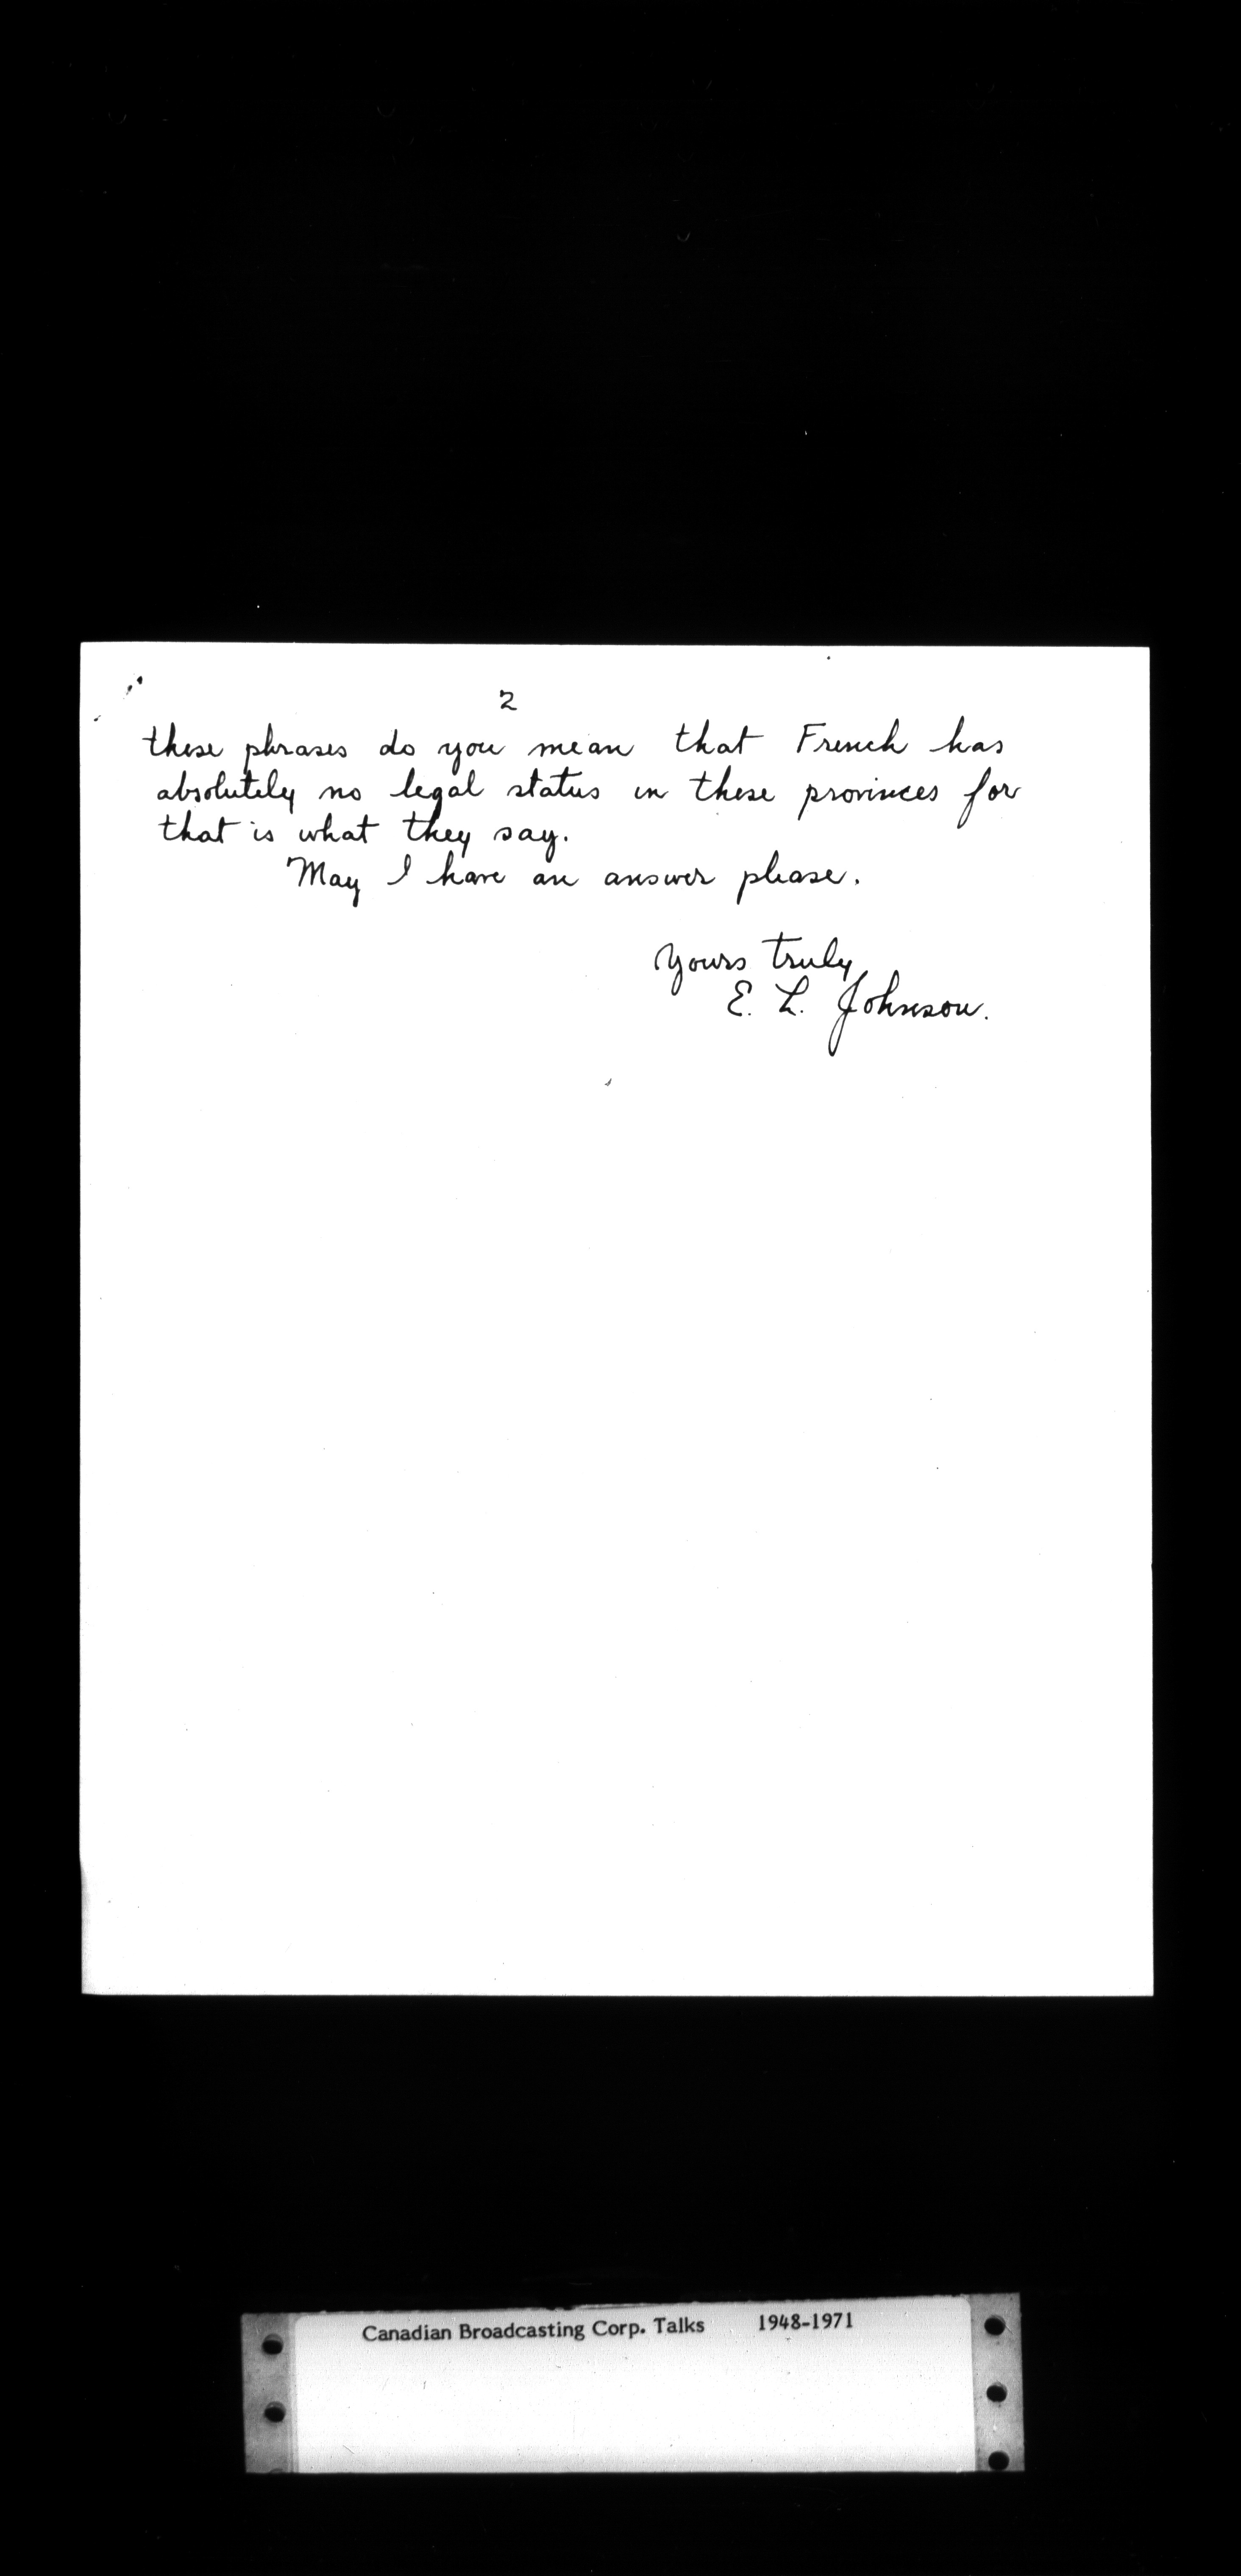 2
these phrases do you mean that French has
absolutely no legal status in these provinces for
that is what they say.
May I have an answer please.
Yours truly
E. L. Johnson.
Canadian Broadcasting Corp. Talks 1948-1971